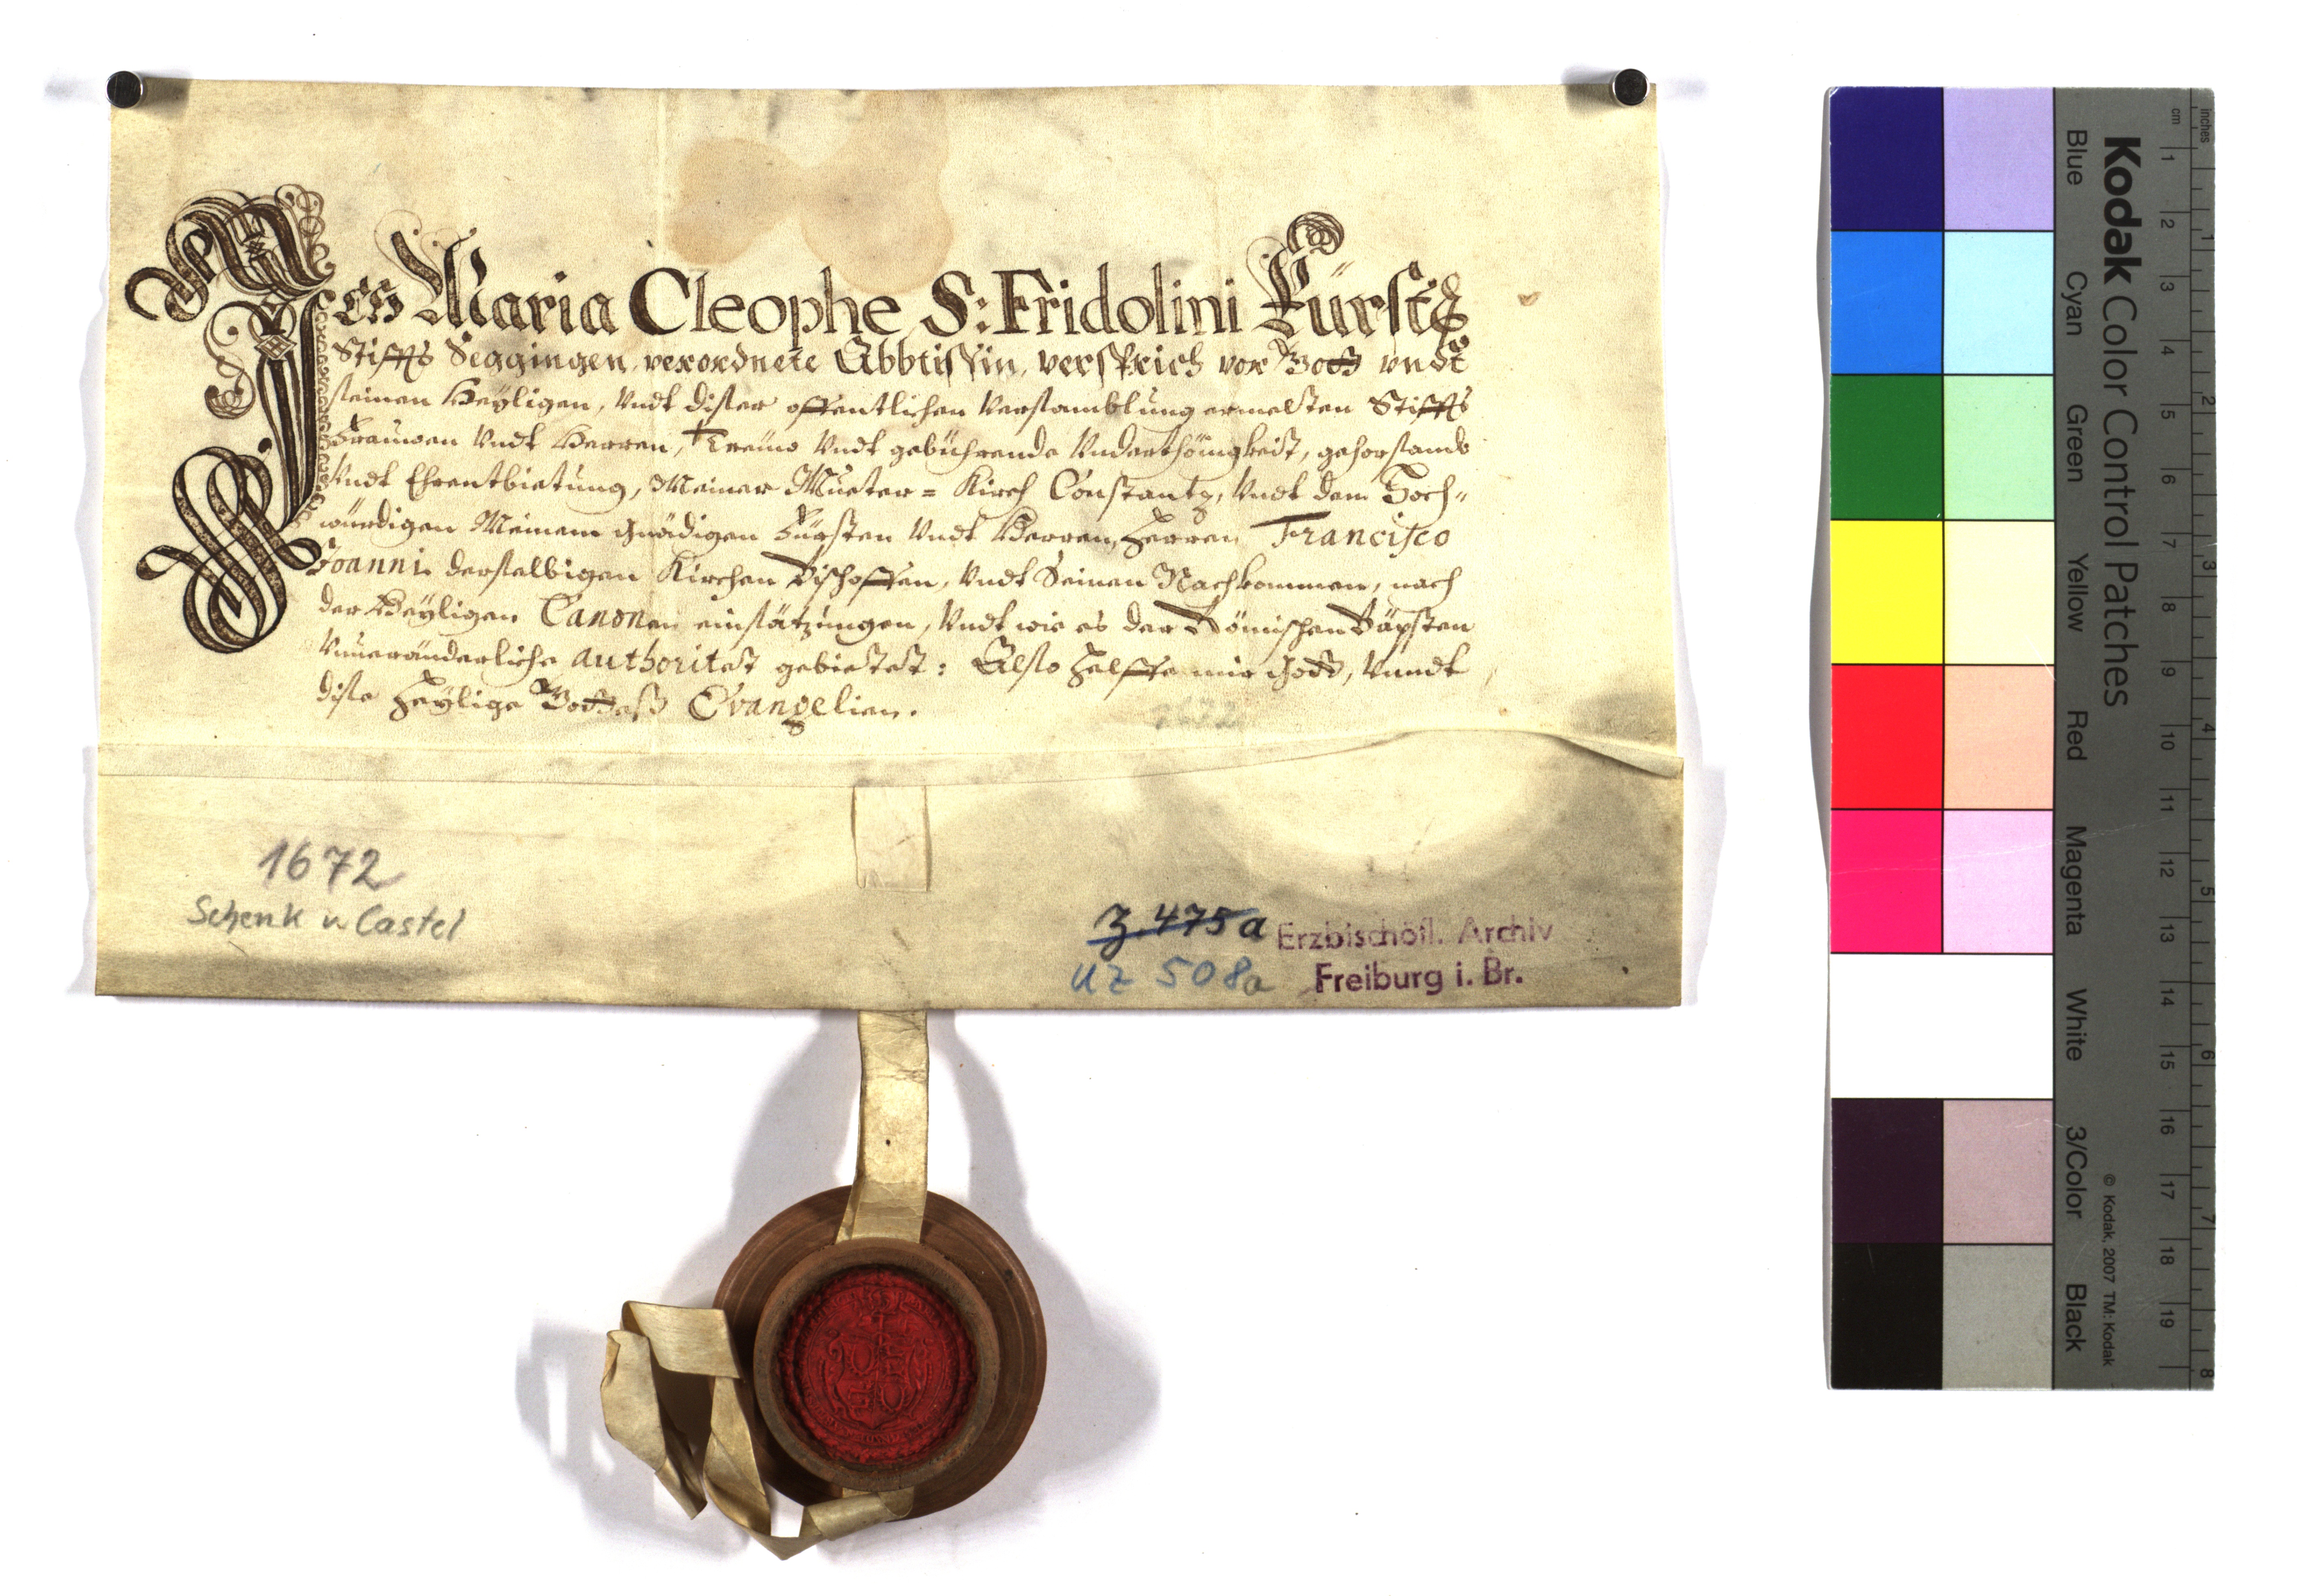 Ich Maria Cleophe S: Fridolini Fürstl:
Stiffts Seggingen, verordnete Abbtissin, versprich vor Gott vndt
seinen Heÿligen, Vndt diser offentlichen Versamblung ermelten Stiffts
Frauwen Vndt Herren, Treüw Vndt gebührende Vnderthönigkeit, gehorsamb
Vndt Ehrentbietung, Meiner Mueter= Kirch Constantz, Vndt dem Hoch-
würdigen Meinem Gnädigen Fürsten Vndt Herren, Herren Francisco
Joanni derselbigen Kirchen Bischoffen, Vndt Seinen Nachkommen, nach
der Heÿligen Canonen einsätzungen, Vndt wie es der Römischen Bäpsten
Vnueränderliche authoritet gebietet: Also helffe mir Gott, Vnndt
dise Heÿlige Gottess Evangelien.
1672
1672
Schenk v Castel
Z. 475a
UZ 508a
Erzbischöfl. Archiv
Freiburg i. Br.
Kodak Color Control Patches
Blue Cyan Green Yellow Red Magenta White 3/Color Black
© Kodak, 2007 TM: Kodak
inches 1 2 3 4 5 6 7 8
cm 1 2 3 4 5 6 7 8 9 10 11 12 13 14 15 16 17 18 19